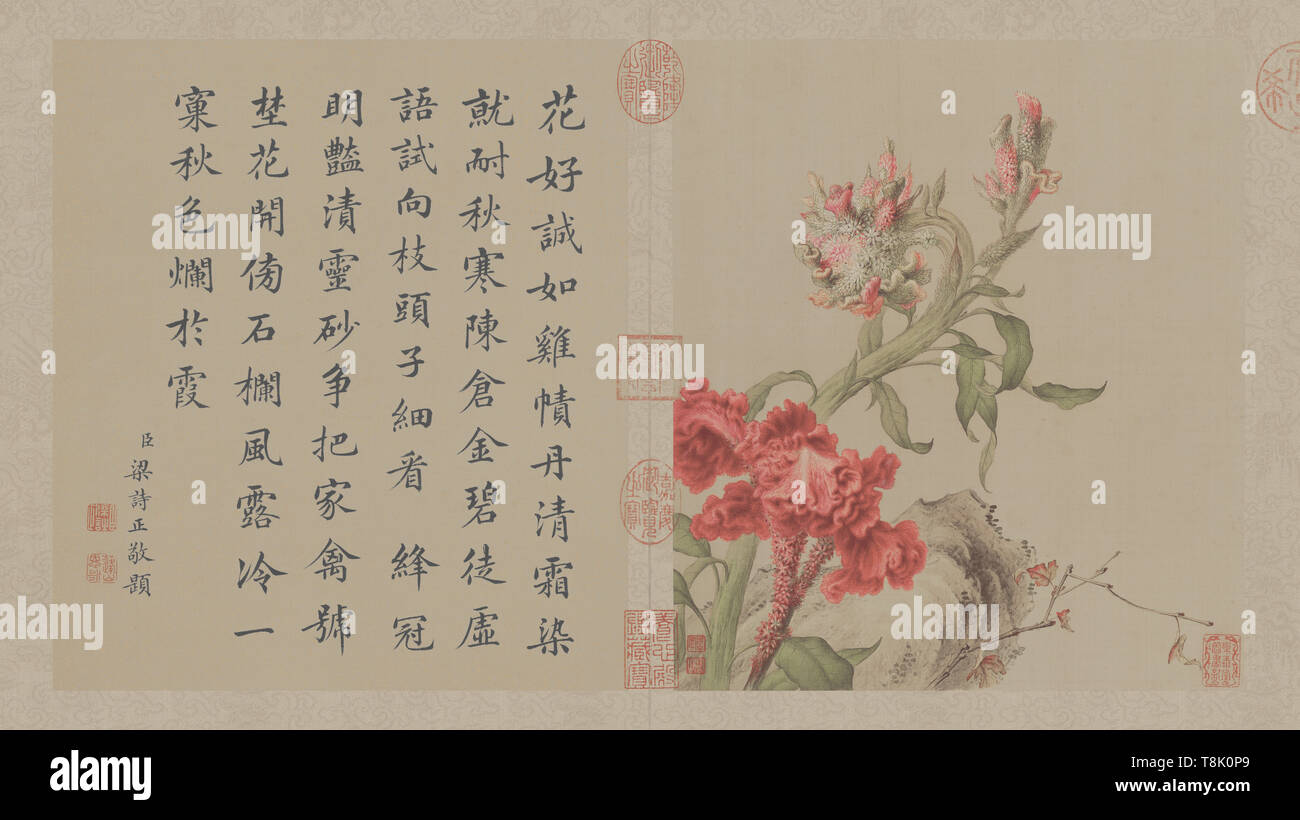 花好誠如雞幘丹清霜染
就耐秋寒陳倉金碧徒虛
語試向枝頭子細看 絳冠
明豔漬靈砂争把家禽號
埜花開傍石欄風露冷一
窠秋色爛於霞
臣梁詩正敬題
乾隆御覽之寶
嘉慶御覽之寶
alamy
alamy
alamy
alamy
alamy
alamy
Image ID: T8K0P9
www.alamy.com